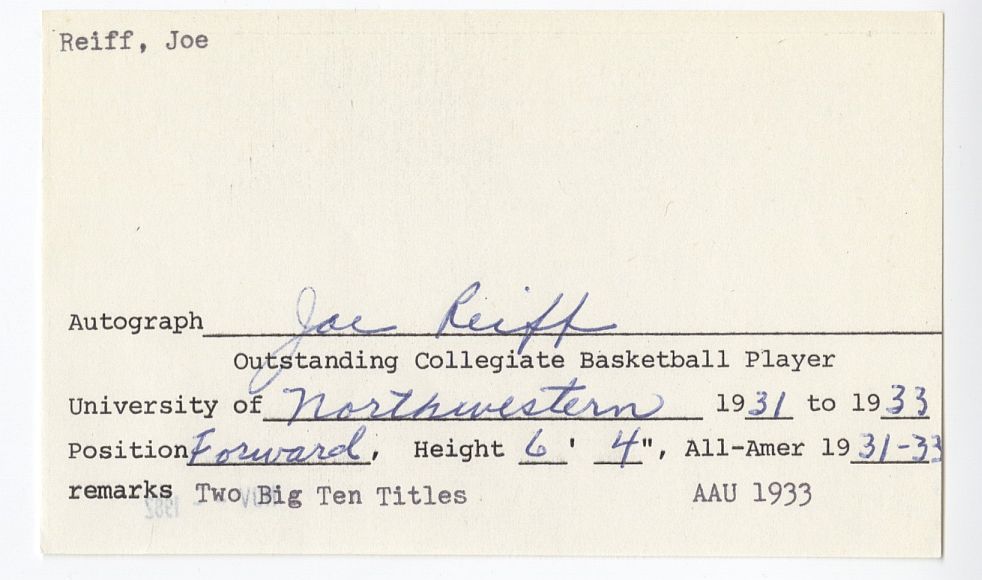 Reiff, Joe
Autograph Joe Reiff
Outstanding Collegiate Basketball Player
University of Northwestern 1931 to 1933
Position Forward, Height 6' 4", All-Amer 1931-33
remarks Two Big Ten Titles AAU 1933